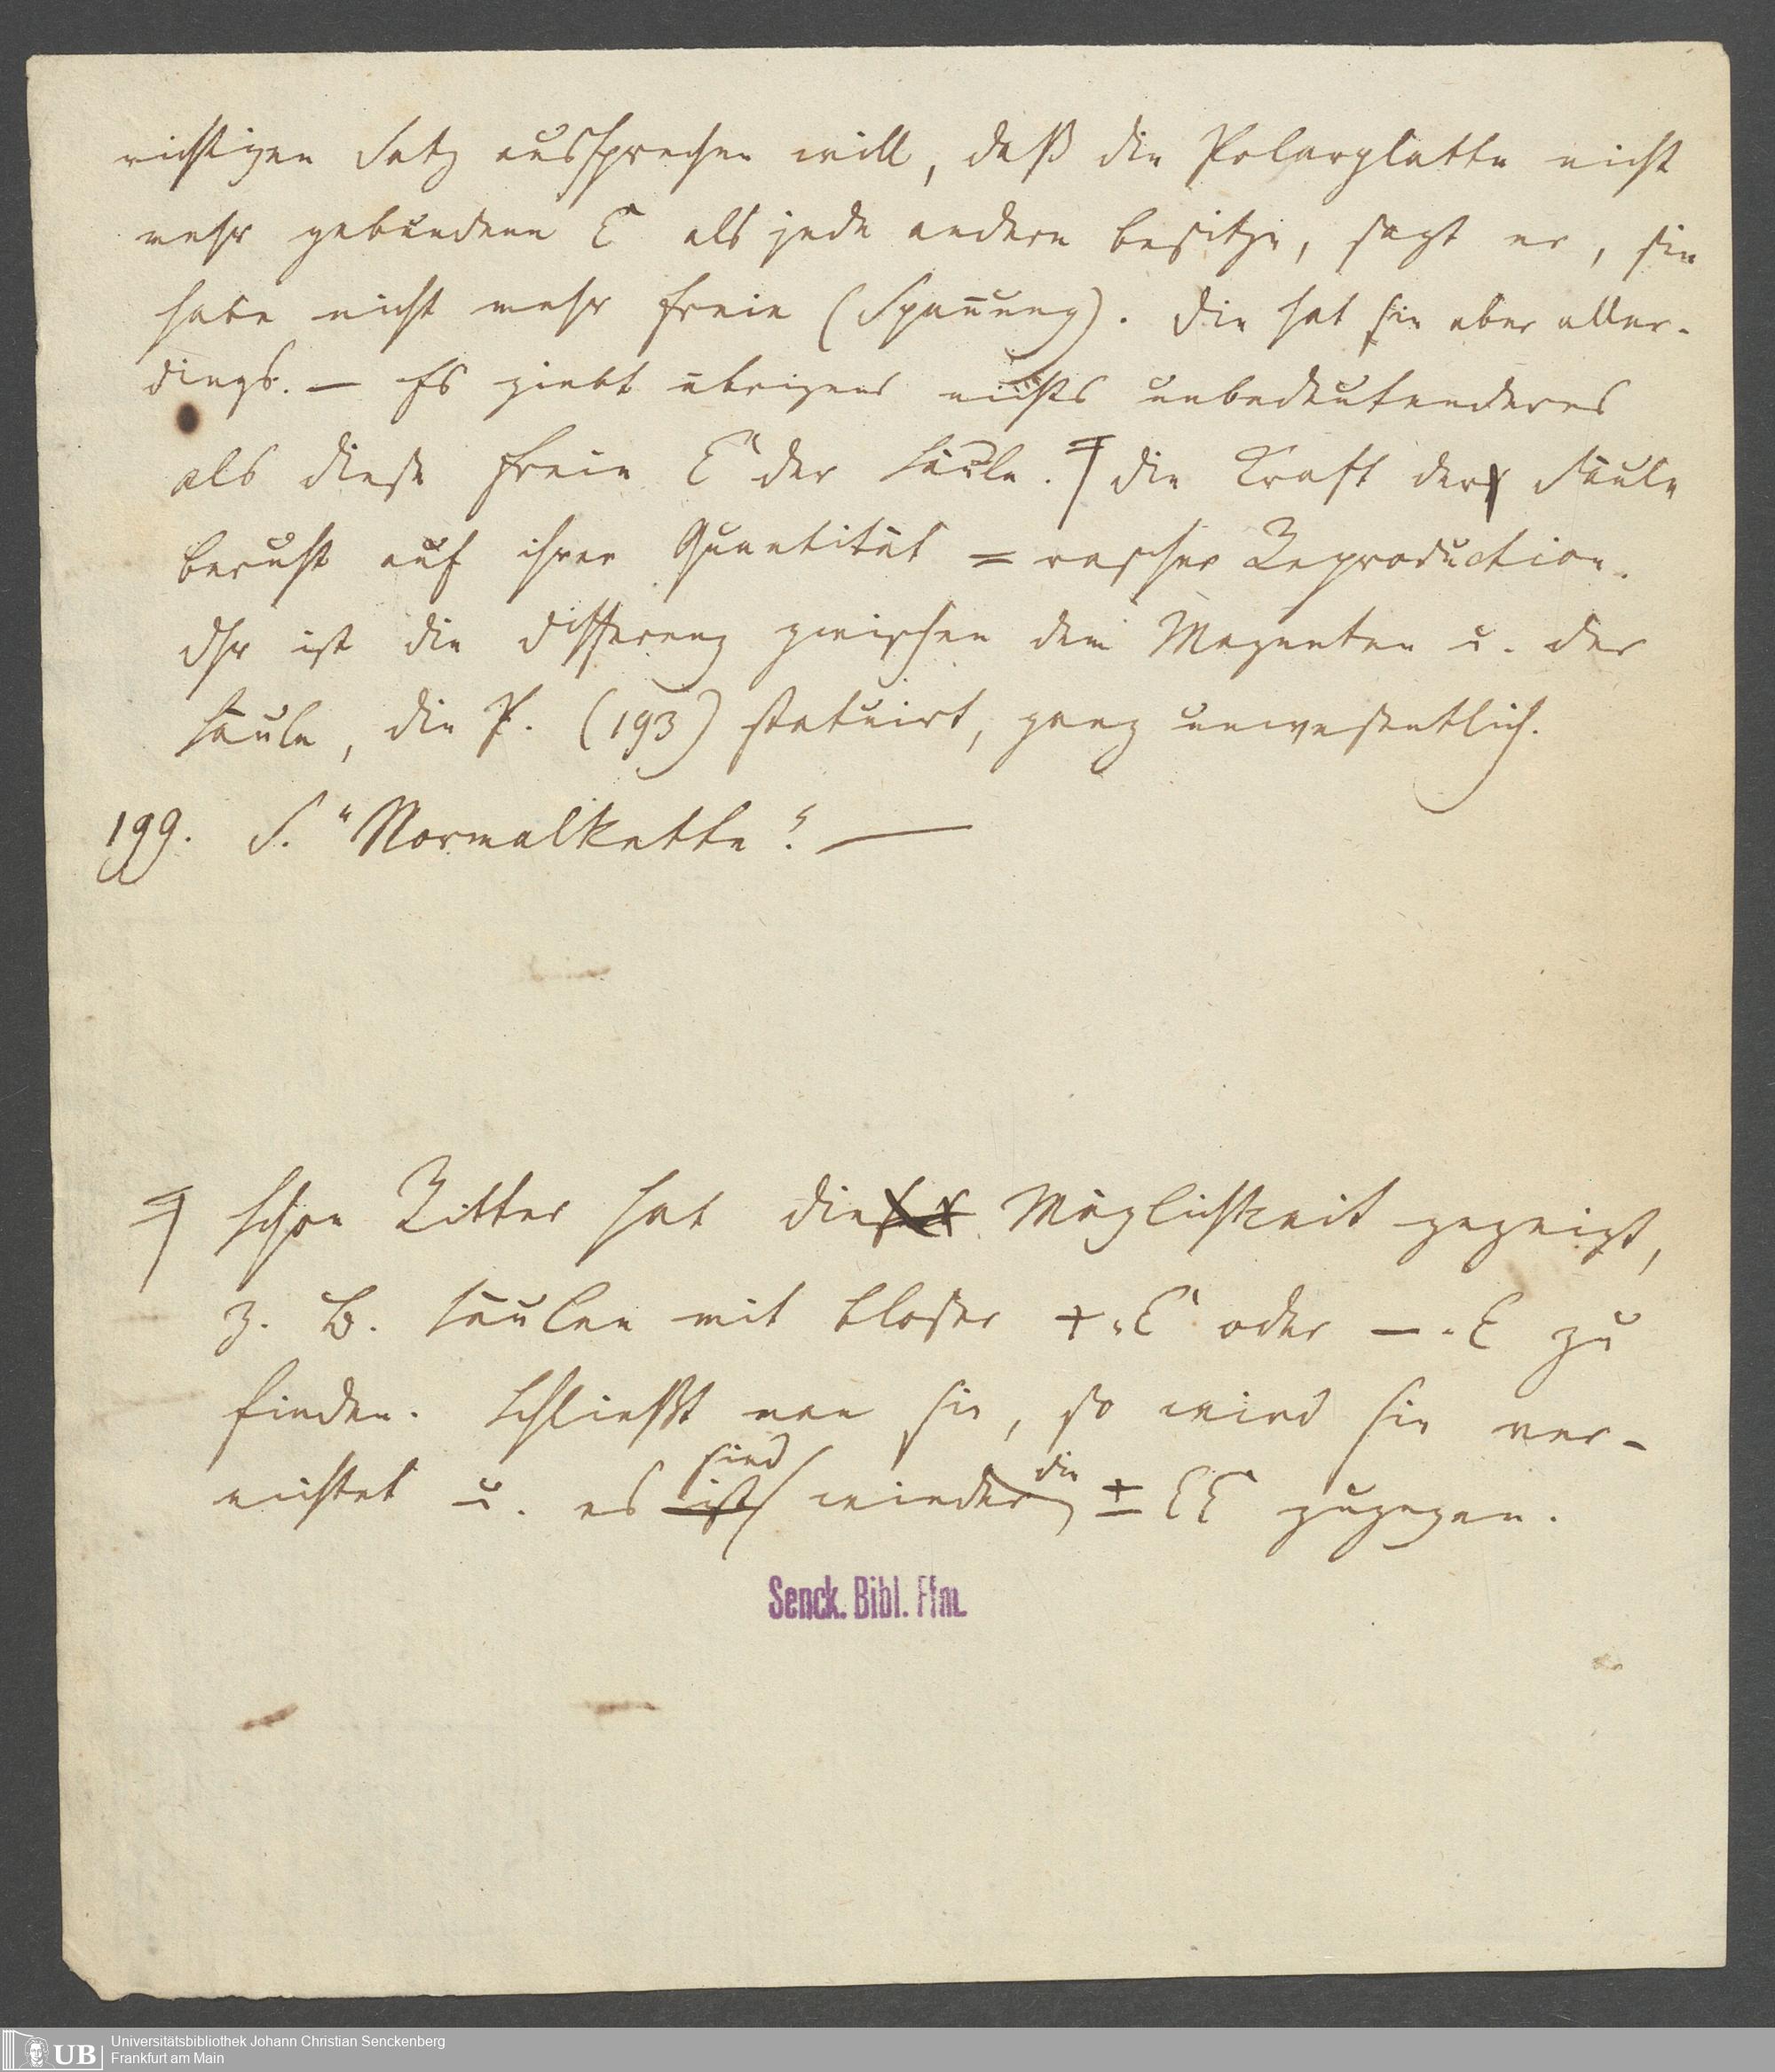 richtigen Satz aussprechen will, daß die Polarplatte nicht
mehr gebundene E als jede andere besitze, sagt er, sie
habe nicht mehr freie (Spañung). Die hat sie aber aller-
dings. — Es giebt übrigens nichts unbedeutenderes
als diese freie E der Säule. ╕ Die Kraft der Säule
beruht auf ihrer Quantität = rascher Reproduction.
Dhr ist die Differenz zwischen dem Magneten u. der
Säule, die P. (193) statuirt, ganz unwesentlich.
199. S. "Normalkette". —
╕ Schon Ritter hat die Möglichkeit gezeigt,
z. B. Säulen mit bloser + E oder — E zu
finden. Schließt man sie, so wird sie ver-
nichtet u. es ist sind wieder die ± EE zugegen.
Senck. Bibl. Ffm.
UB Universitätsbibliothek Johann Christian Senckenberg
Frankfurt am Main